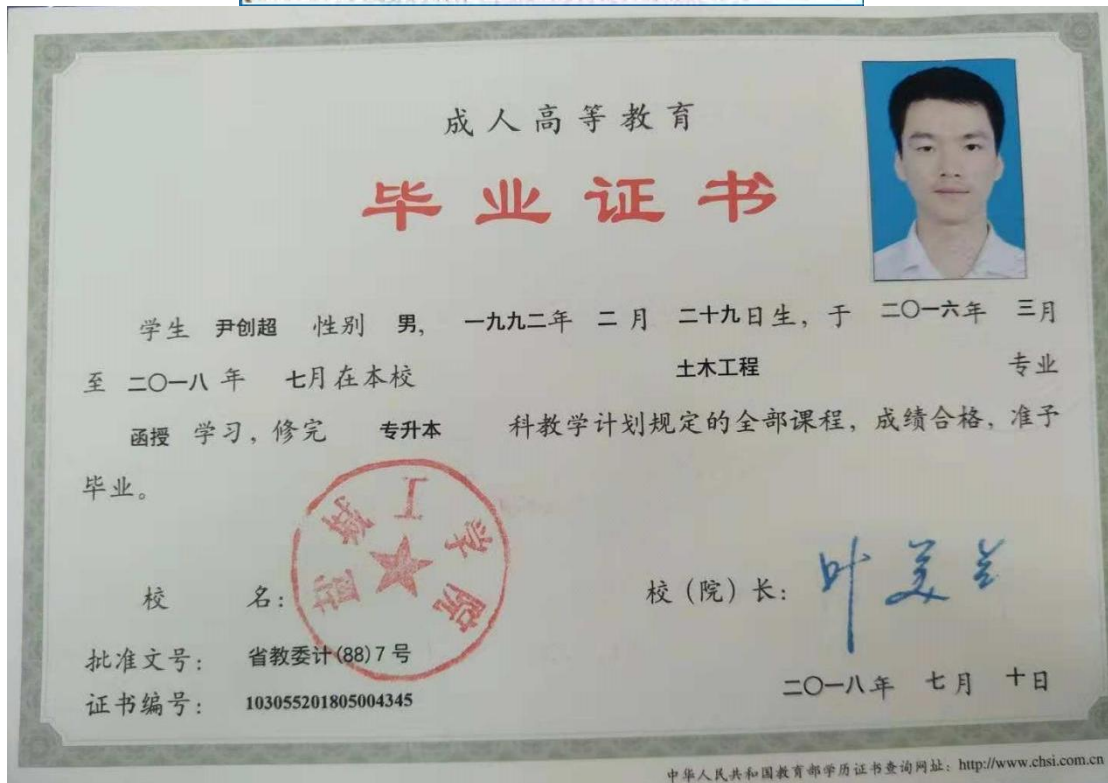 成人高等教育
毕业证书
学生 尹创超 性别 男， 一九九二年 二月 二十九日生，于 二〇一六年 三月
至 二〇一八 年 七月在本校 土木工程 专业
函授 学习，修完 专升本 科教学计划规定的全部课程，成绩合格，准予
毕业。
校 名：
工学院
校（院）长：
叶美兰
批准文号： 省教委计(88)7号
证书编号： 103055201805004345
二〇一八年 七月 十日
中华人民共和国教育部学历证书查询网址：http://www.chsi.com.cn